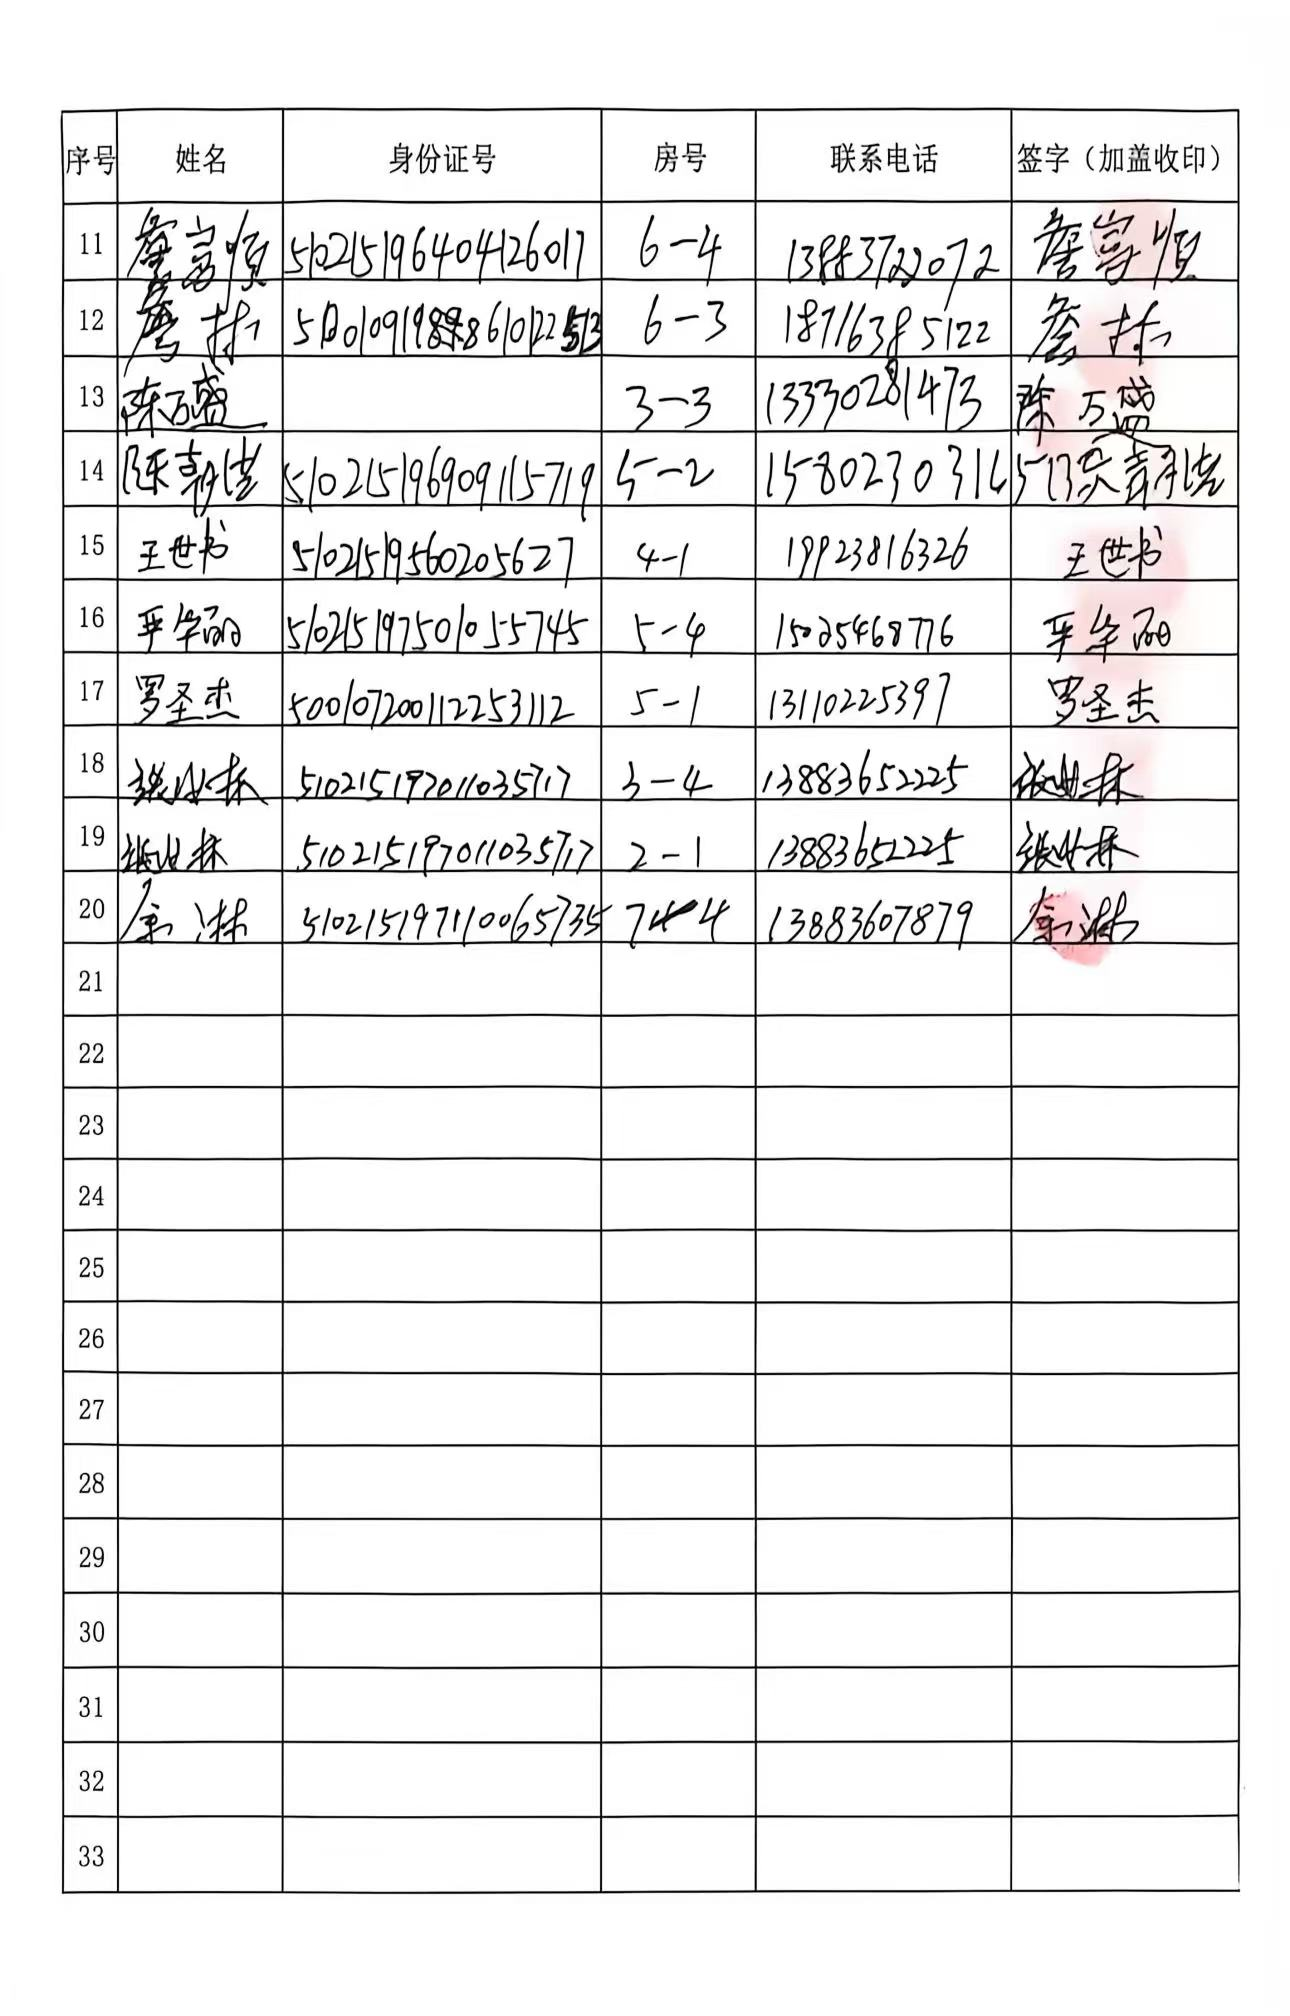 序号 姓名 身份证号 房号 联系电话 签字（加盖收印）
11 詹富顺 510215196404126017 6-4 13883722072 詹富顺
12 詹 6-3 18716385122 詹
13 陈万盛 3-3 13330281473 陈万盛
14 陈朝 510215196909115719 5-2
15 王世书 510215195602056 27 4-1 19923816326 王世书
16 平华丽 510215197501055745 5-4 15025468776 平华丽
17 罗圣杰 500107200112253112 5-1 13110225397 罗圣杰
18 林 510215197011035717 3-4 13883652225 林
19 林 510215197011035717 2-1 13883652225 林
20 淋 510215197110065735 7-4 13883607879 淋
21
22
23
24
25
26
27
28
29
30
31
32
33